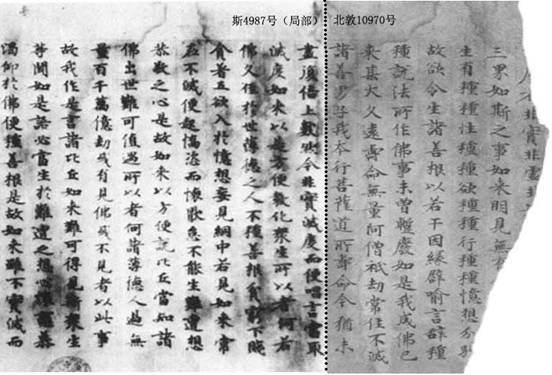 斯4987号（局部） 北敦10970号
非實非虛非
三界如斯之事如来明見無
生有種種性種種欲種種行種種憶想分別
故欲令生諸善根以若干因緣譬喻言辞種
種說法所作佛事未曾暫廢如是我成佛已
来甚大久遠壽命無量阿僧祇劫常住不滅
諸善男子我本行菩薩道所成壽命今猶未
盡復倍上數然今非實滅度而便唱言當取
滅度如来以是方便教化衆生所以者何若
佛久住於世薄德之人不種善根貧窮下賤
貪著五欲入於憶想妄見網中若見如来常
在不滅便起憍恣而懷猒怠不能生難遭想
恭敬之心是故如来以方便說比丘當知諸
佛出世難可值遇所以者何諸薄德人過無
量百千萬億劫或有見佛或不見者以此事
故我作是言諸比丘如来難可得見斯衆生
等聞如是語必當生於難遭之想心懷戀慕
渴仰於佛便種善根是故如来雖不實滅而